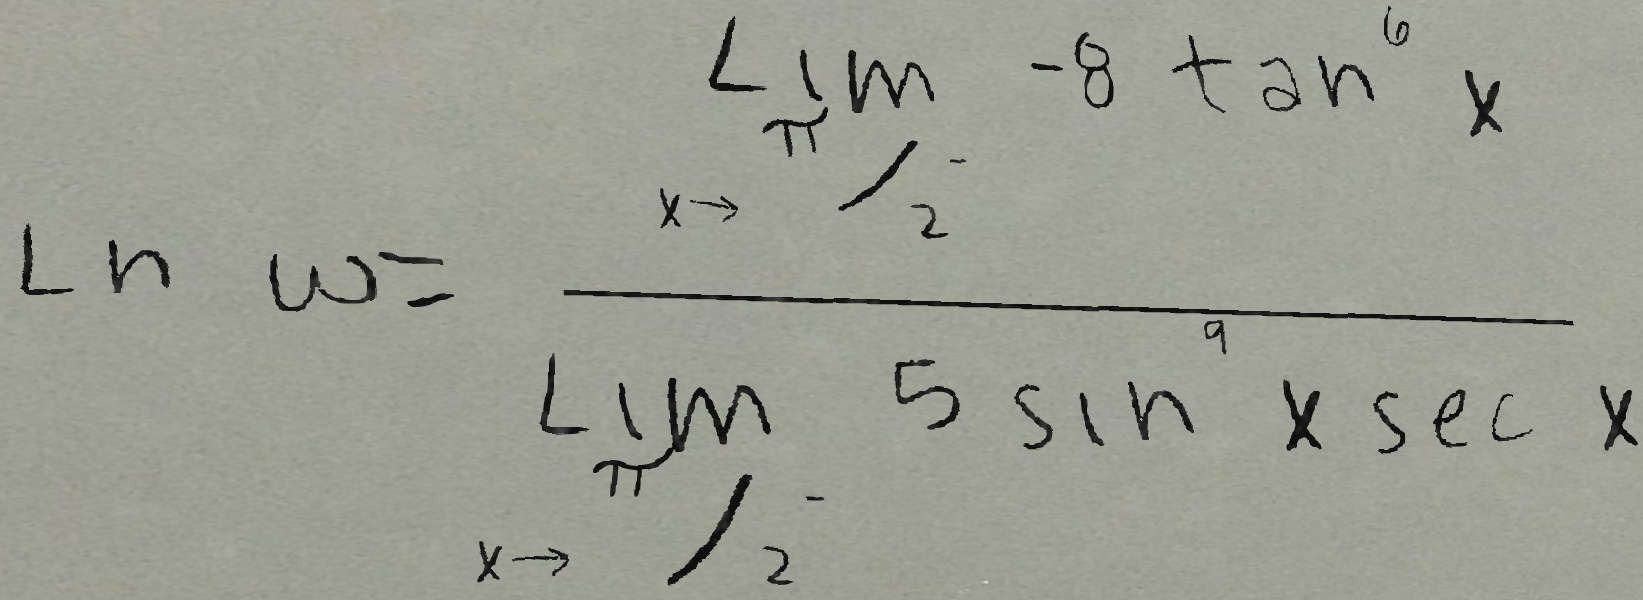 $$\ln w = \frac{\lim_{x \to \pi/2^-} -8 \tan^6 x}{\lim_{x \to \pi/2^-} 5 \sin^9 x \sec x}$$